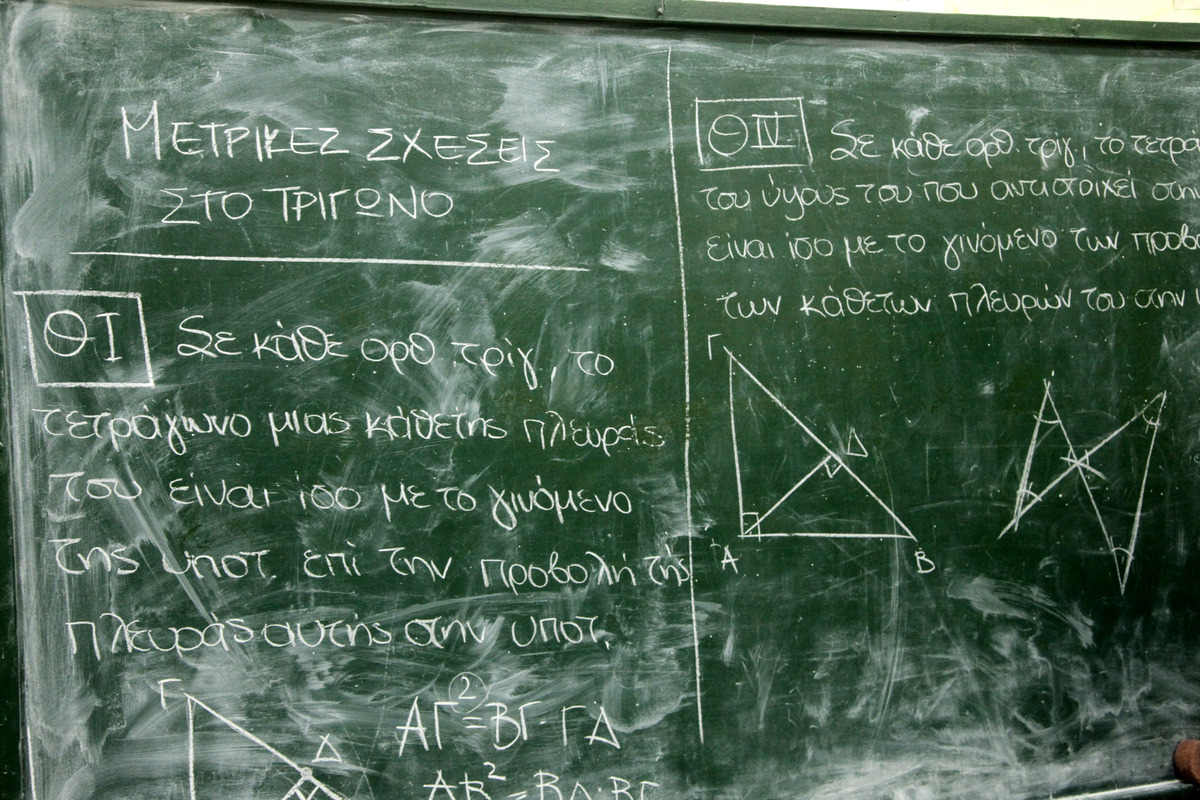 ΜΕΤΡΙΚΕΣ ΣΧΕΣΕΙΣ
ΣΤΟ ΤΡΙΓΩΝΟ
ΘΙ Σε κάθε ορθ. τρίγ, το
τετράγωνο μιας κάθετης πλευράς
του είναι ίσο με το γινόμενο
της υποτ. επί την προβολή της
πλευράς αυτής στην υποτ.
Γ
Δ
ΑΓ²=ΒΓ·ΓΔ
ΑΒ²=ΒΔ·ΒΓ
ΘIV Σε κάθε ορθ. τρίγ, το τετρα
του ύψους του που αντιστοιχεί στην
είναι ίσο με το γινόμενο των προβ
των κάθετων πλευρών του στην
Γ
Δ
Α
Β